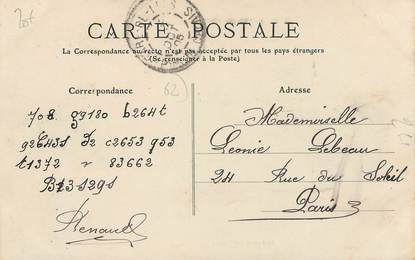 CARTE POSTALE
La Correspondance au recto n'est pas acceptée par tous les pays étrangers
(Se renseigner à la Poste)
Correspondance
Adresse
62
708 g3180 b264t
Mademoiselle
92643s d2 c2653 953
Leonie Lebeau
t1372 r 83662
24 Rue du Soleil
B13-529s
Paris
Renaud